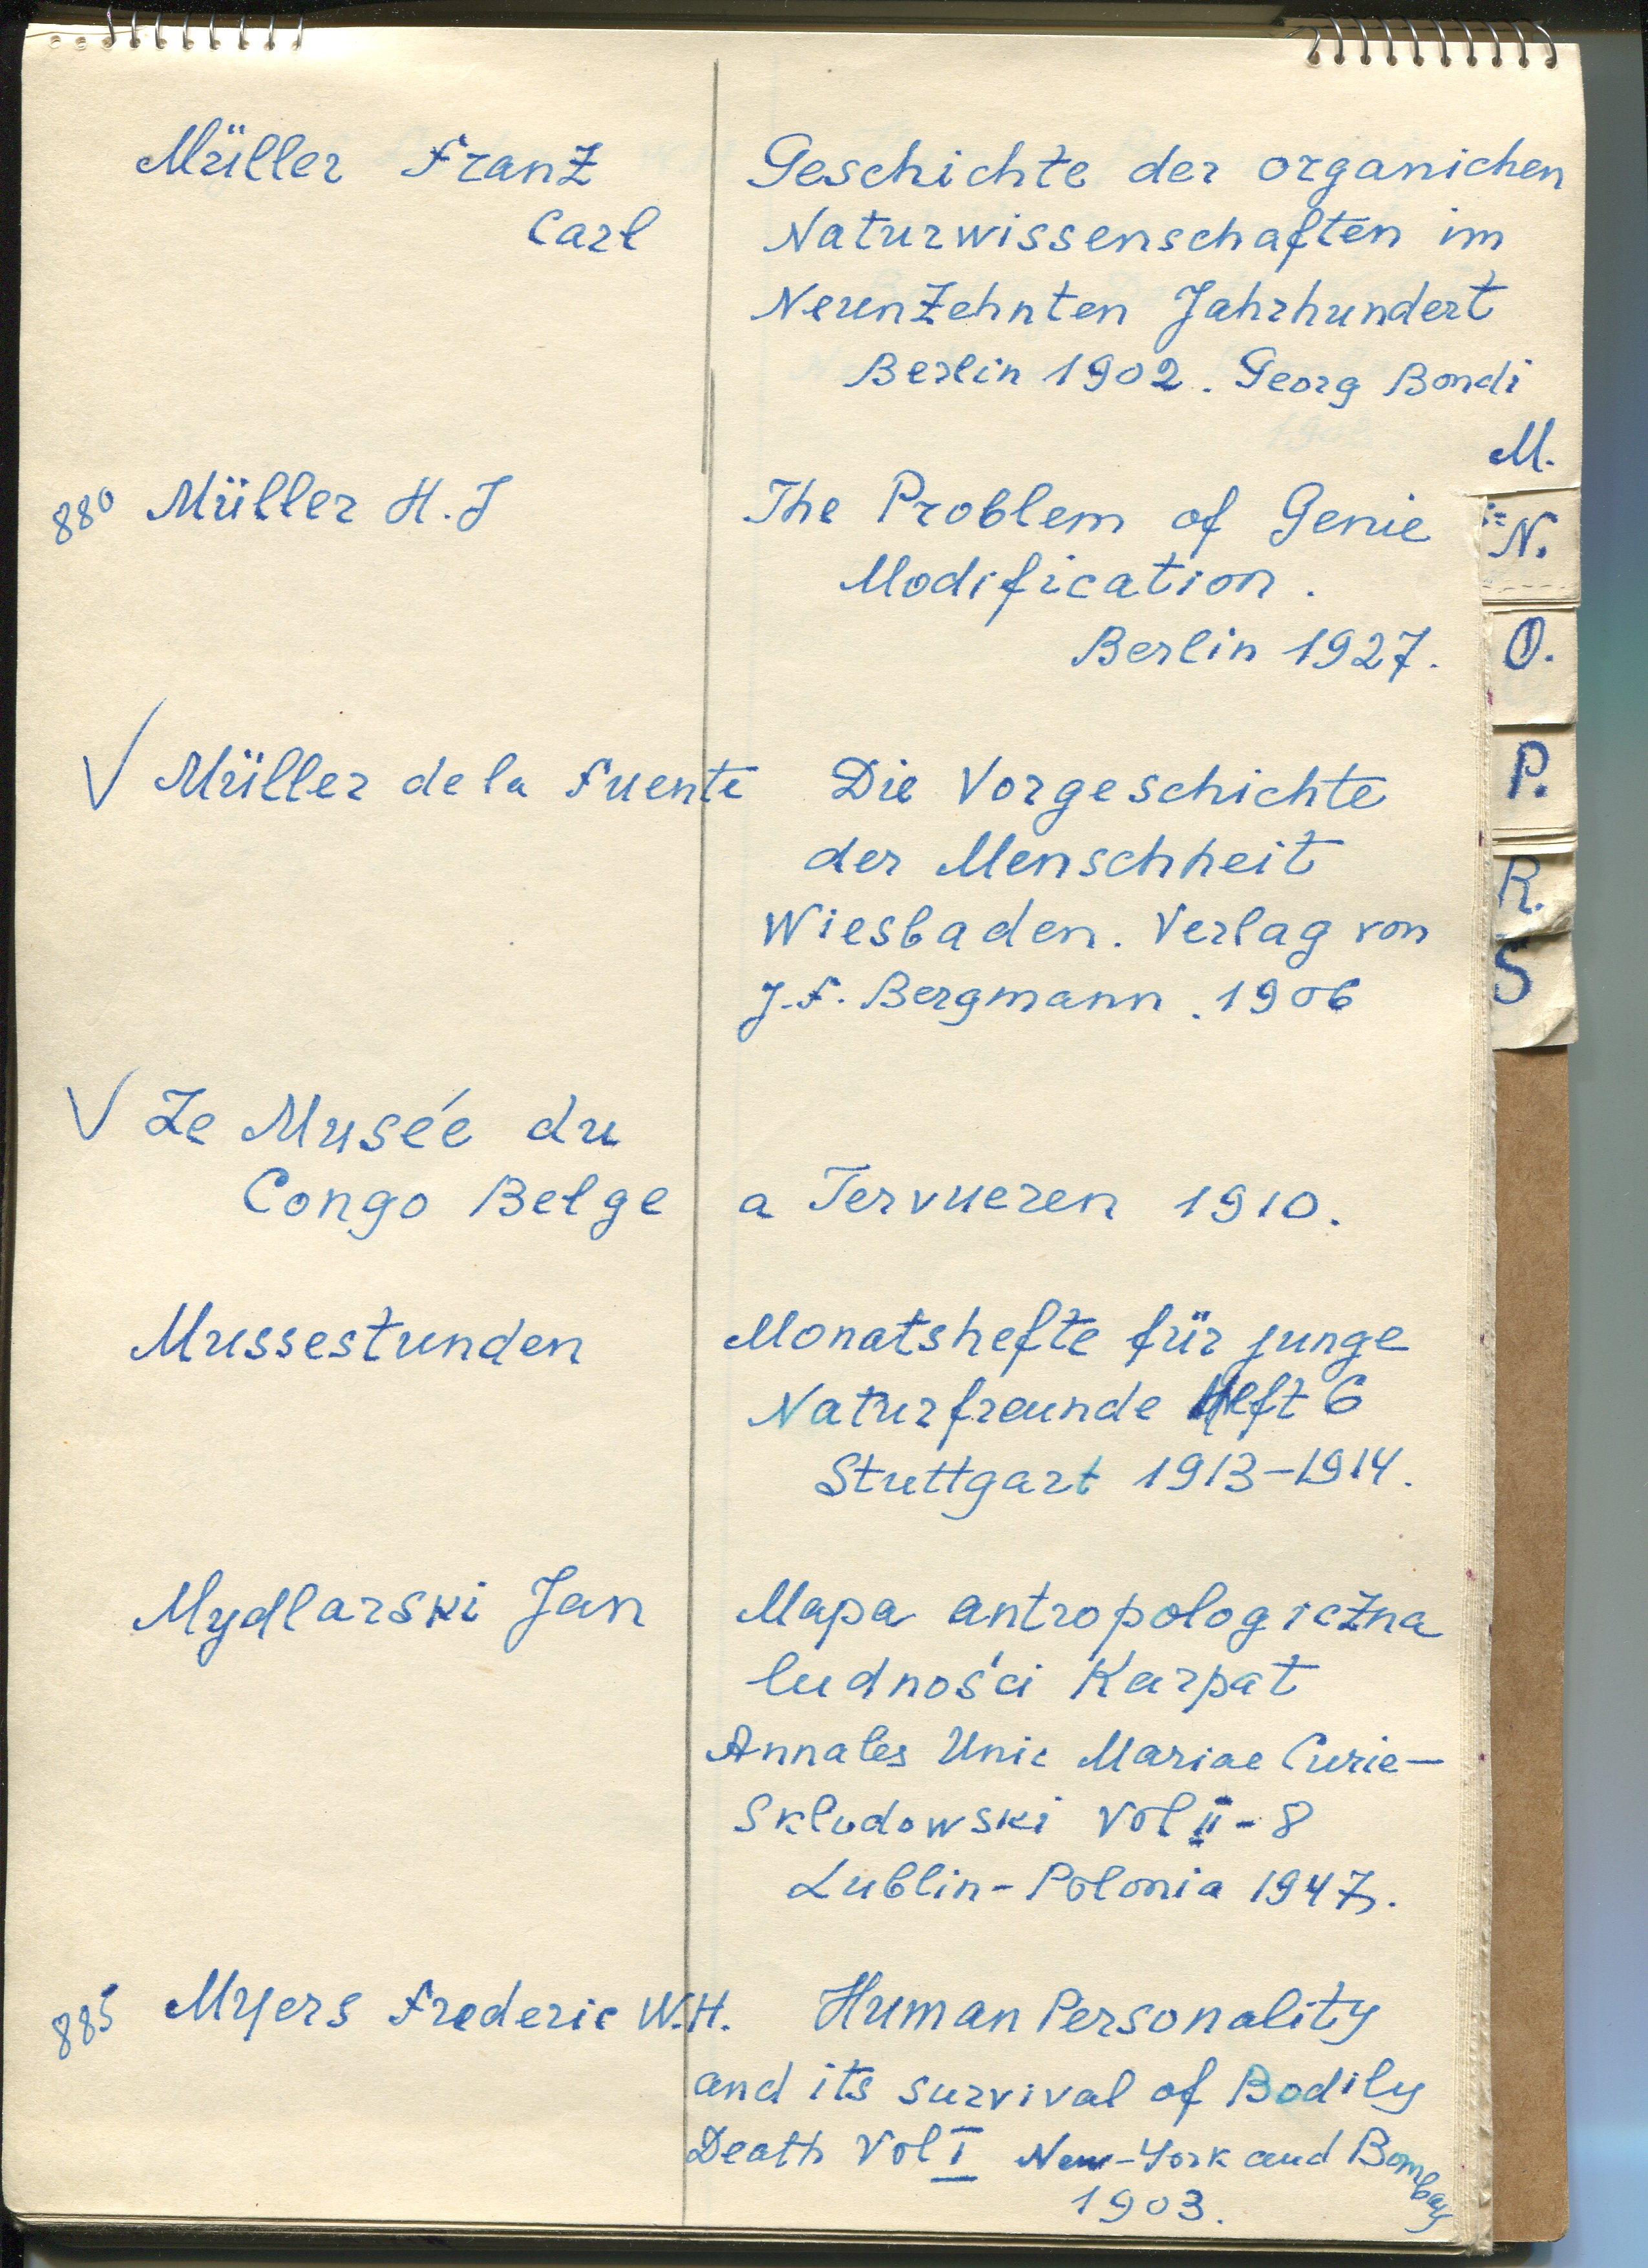 Müller Franz
Carl
Geschichte der organichen
Naturwissenschaften im
Neunzehnten Jahrhundert
Berlin 1902. Georg Bondi
M.
880 Müller H. J
The Problem of Genie
Modification.
Berlin 1927.
N.
O.
√ Müller de la Fuente
Die Vorgeschichte
der Menschheit
Wiesbaden. Verlag von
J. F. Bergmann. 1906
P.
R.
S
√ Le Musée du
Congo Belge
a Tervueren 1910.
Mussestunden
Monatshefte für junge
Naturfreunde Heft 6
Stuttgart 1913-1914.
Mydlarski Jan
Mapa antropologiczna
ludności Karpat
Annales Unic Mariae Curie-
Skludowski Vol II - 8
Lublin-Polonia 1947.
885 Myers Frederic W.H.
Human Personality
and its survival of Bodily
Death Vol I New-York and Bombay
1903.